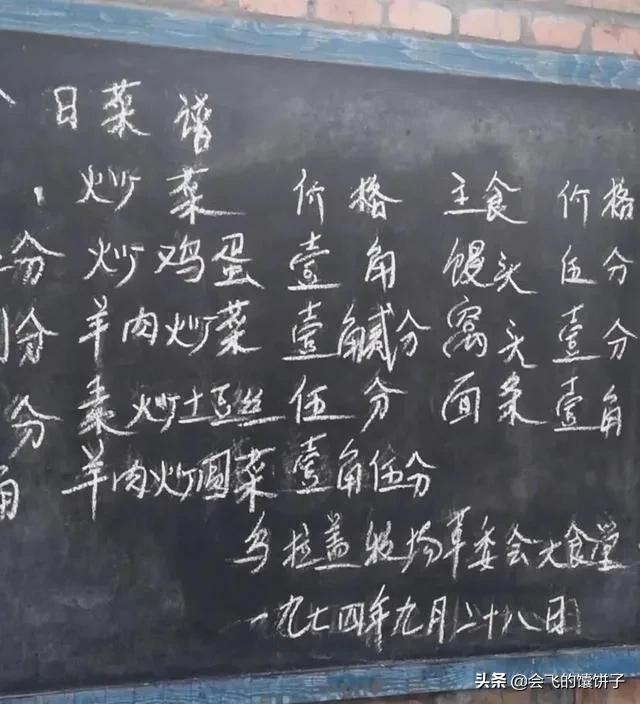 日菜谱
炒菜 价格 主食 价格
分 炒鸡蛋 壹角 馒头 伍分
分 羊肉炒菜 壹角贰分 窝头 壹分
分 素炒土豆丝 伍分 面条 壹角
角 羊肉炒圆菜 壹角伍分
乌拉盖牧场革委会大食堂
一九七四年九月二十八日
头条 @会飞的馕饼子